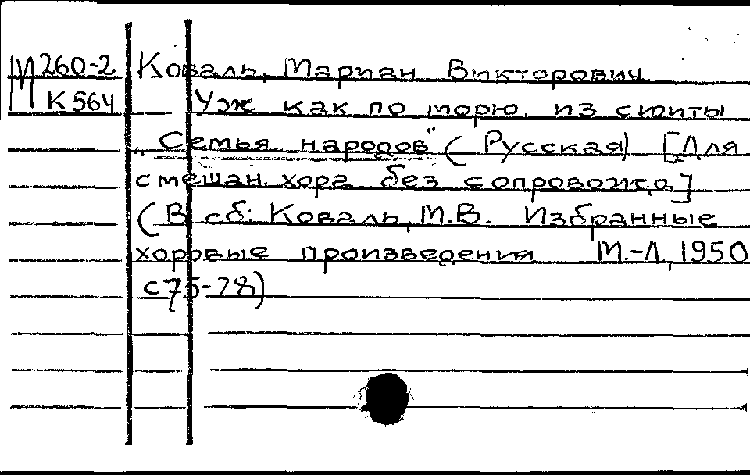 М 260-2 Коваль, Мариан Викторович
К 564 Уж как по морю, из сюиты
"Семья народов" (Русская) [Для
смешан. хора без сопровожд.]
(В сб: Коваль, М.В. Избранные
хоровые произведения М.-Л, 1950
с 75-78)